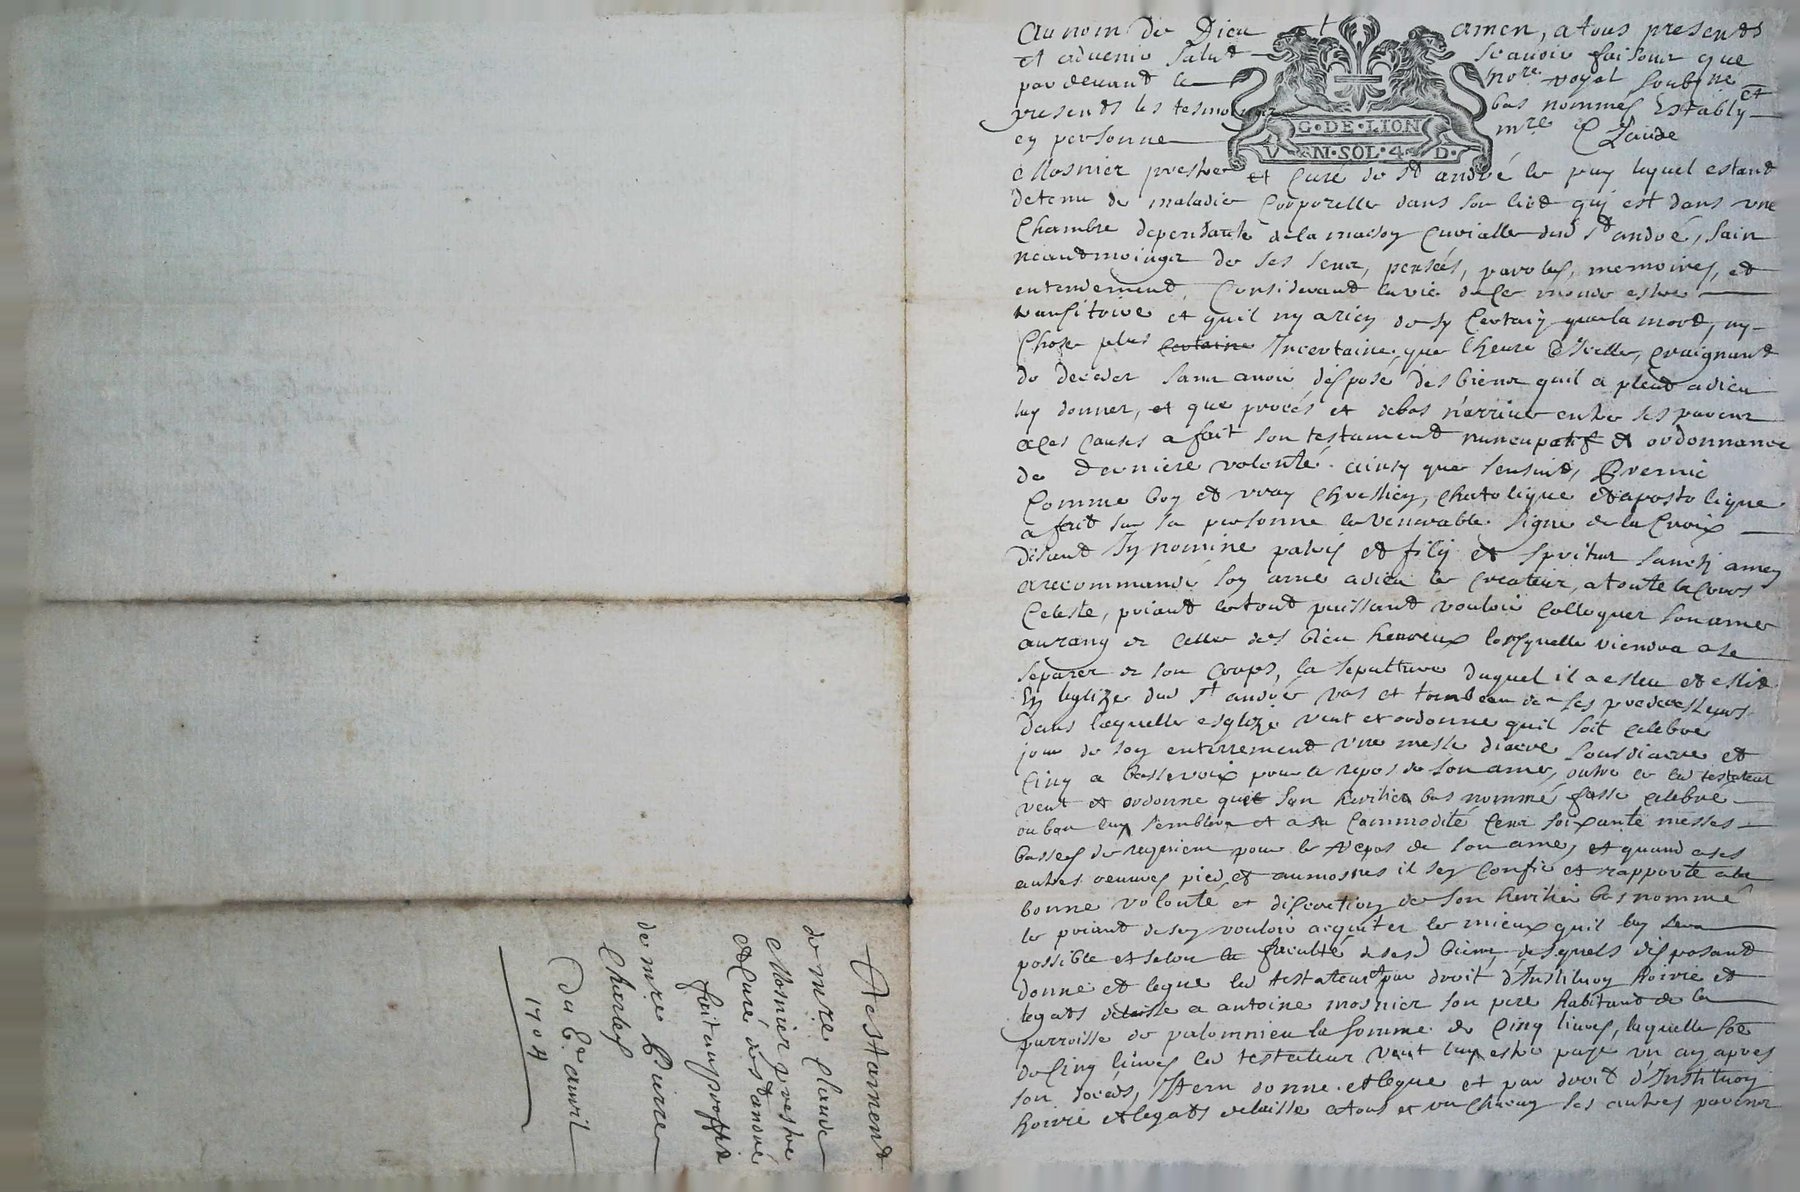 Testament
de mre Claude
Mosnier prestre
et Curé de st andré
fait au proffit
de mre Pierre
Charles
Du 6e auvril
1704
Au nom de Dieu amen, a tous presents
et aduenir salut scavoir faisons que
par deuant le nore royal soubsne et
presents les tesmoins bas nommes Estably
en personne mre Claude
Mosnier prestre et Curé de st andré le puy lequel estant
detenu de maladie Corporelle dans son lict qui est dans une
Chambre dependante de la maison Curialle dud st andré, sain
neautmoings de ses sens, pensées, parolles, memoires, et
entendement, Considerant la vie de Ce monde estre
transitoire et quil ny a rien de sy Certain que la mort, ny
Chose plus certaine Incertaine que lheure dicelle, Craignant
de deceder sans avoir disposé des biens quil a pleut a dieu
luy donner, et que procés et debas n'arriue entre ses parens
a Ces Causes a fait son testament nuncupatif et ordonnance
de derniere volonté ainsy que sensuit, Premie
Comme bon et vray Chrestien, Chatolique et apostolique
a fait sur sa personne le venerable signe de la Croix
disant In nomine patris et filij et spritus sancti amen
a recommandé son ame a dieu le Createur, a toute la Cours
Celeste, priant le tout puissant vouloir Colloquer son ame
au rang de Celle des bien heureux lors quelle viendra a se
separer de son Corps, la sepulture duquel il a esleu et eslit
En leglize dud st andré vas et tombeau de ses predecesseurs
dans laquelle esglize veut et ordonne quil soit celebre
jour de son enterrement une messe diacre sousdiacre et
Cinq a basse voix pour le repos de son ame, outre ce led testateur
veut et ordonne que son heritier bas nommé fasse celebré
ou bon luy semblera et a sa Commodité Cens soixante messes
basses de requiem pour le repos de son ame, et quand a ses
autres oeuures pies et aumosnes il sen Confie et rapporte a la
bonne volonté et discretion de son heritier bas nommé
le priant de sen vouloir acquiter le mieux quil luy sera
possible et selon la faculté de ses biens desquels disposant
donne et legue led testateur et par droit d'Institution hoirie et
legats delaisse a antoine mosnier son pere habitant de la
parroisse de palomnieu la somme de Cinq liures, laquelle soe
de Cinq liures led testateur veut luy estre payé un an apres
son deces, Item donne et legue et par droit d'Institution
hoirie et legats delaisse a tous et un Chacun ses autres parens